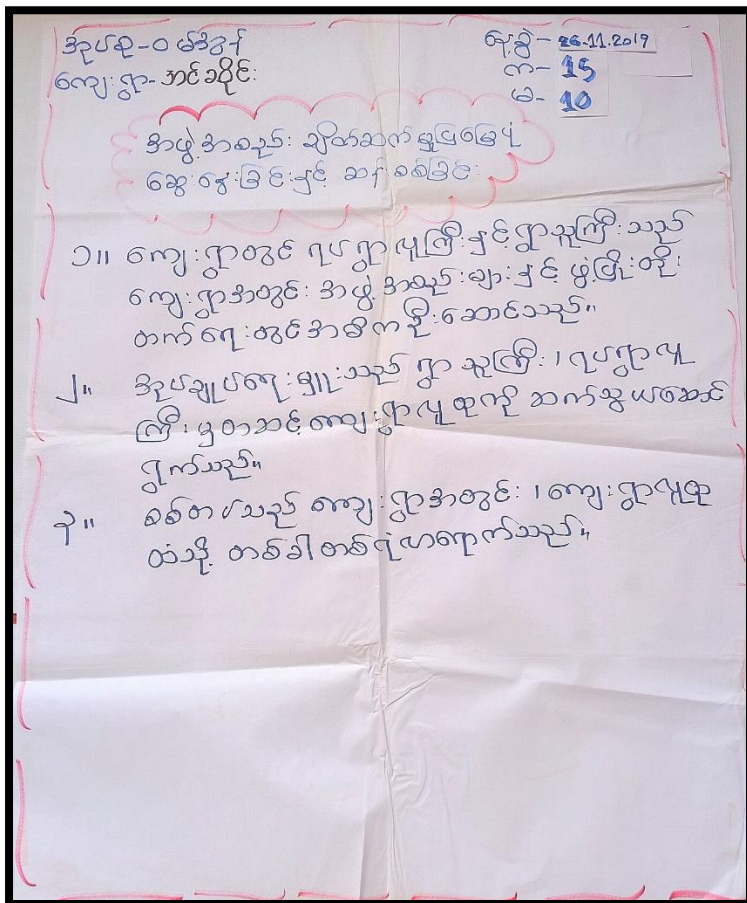 အုပ်စု-ဝမ်အွန်
ကျေးရွာ-အင်ခိုင်း
နေ့စွဲ- 26.11.2019
က- 15
မ- 10
အဖွဲ့အစည်း ချိတ်ဆက်မှုပြမြေပုံ
ဆွေးနွေးခြင်းနှင့် ဆန်းစစ်ခြင်း
၁။ ကျေးရွာတွင် ရပ်ရွာလူကြီးနှင့်ရွာသူကြီးသည်
ကျေးရွာအတွင်း အဖွဲ့အစည်းများနှင့် ဖွံ့ဖြိုးတိုး
တက်ရေးတွင်အဓိကဦးဆောင်သည်။
၂။ အုပ်ချုပ်ရေးမှူးသည် ရွာသူကြီး၊ ရပ်ရွာလူ
ကြီးမှတဆင့်ကျေးရွာလူထုကို ဆက်သွယ်ဆောင်
ရွက်သည်။
၃။ စစ်တပ်သည် ကျေးရွာအတွင်း၊ ကျေးရွာလူထု
ထံသို့ တစ်ခါတစ်ရံလာရောက်သည်။